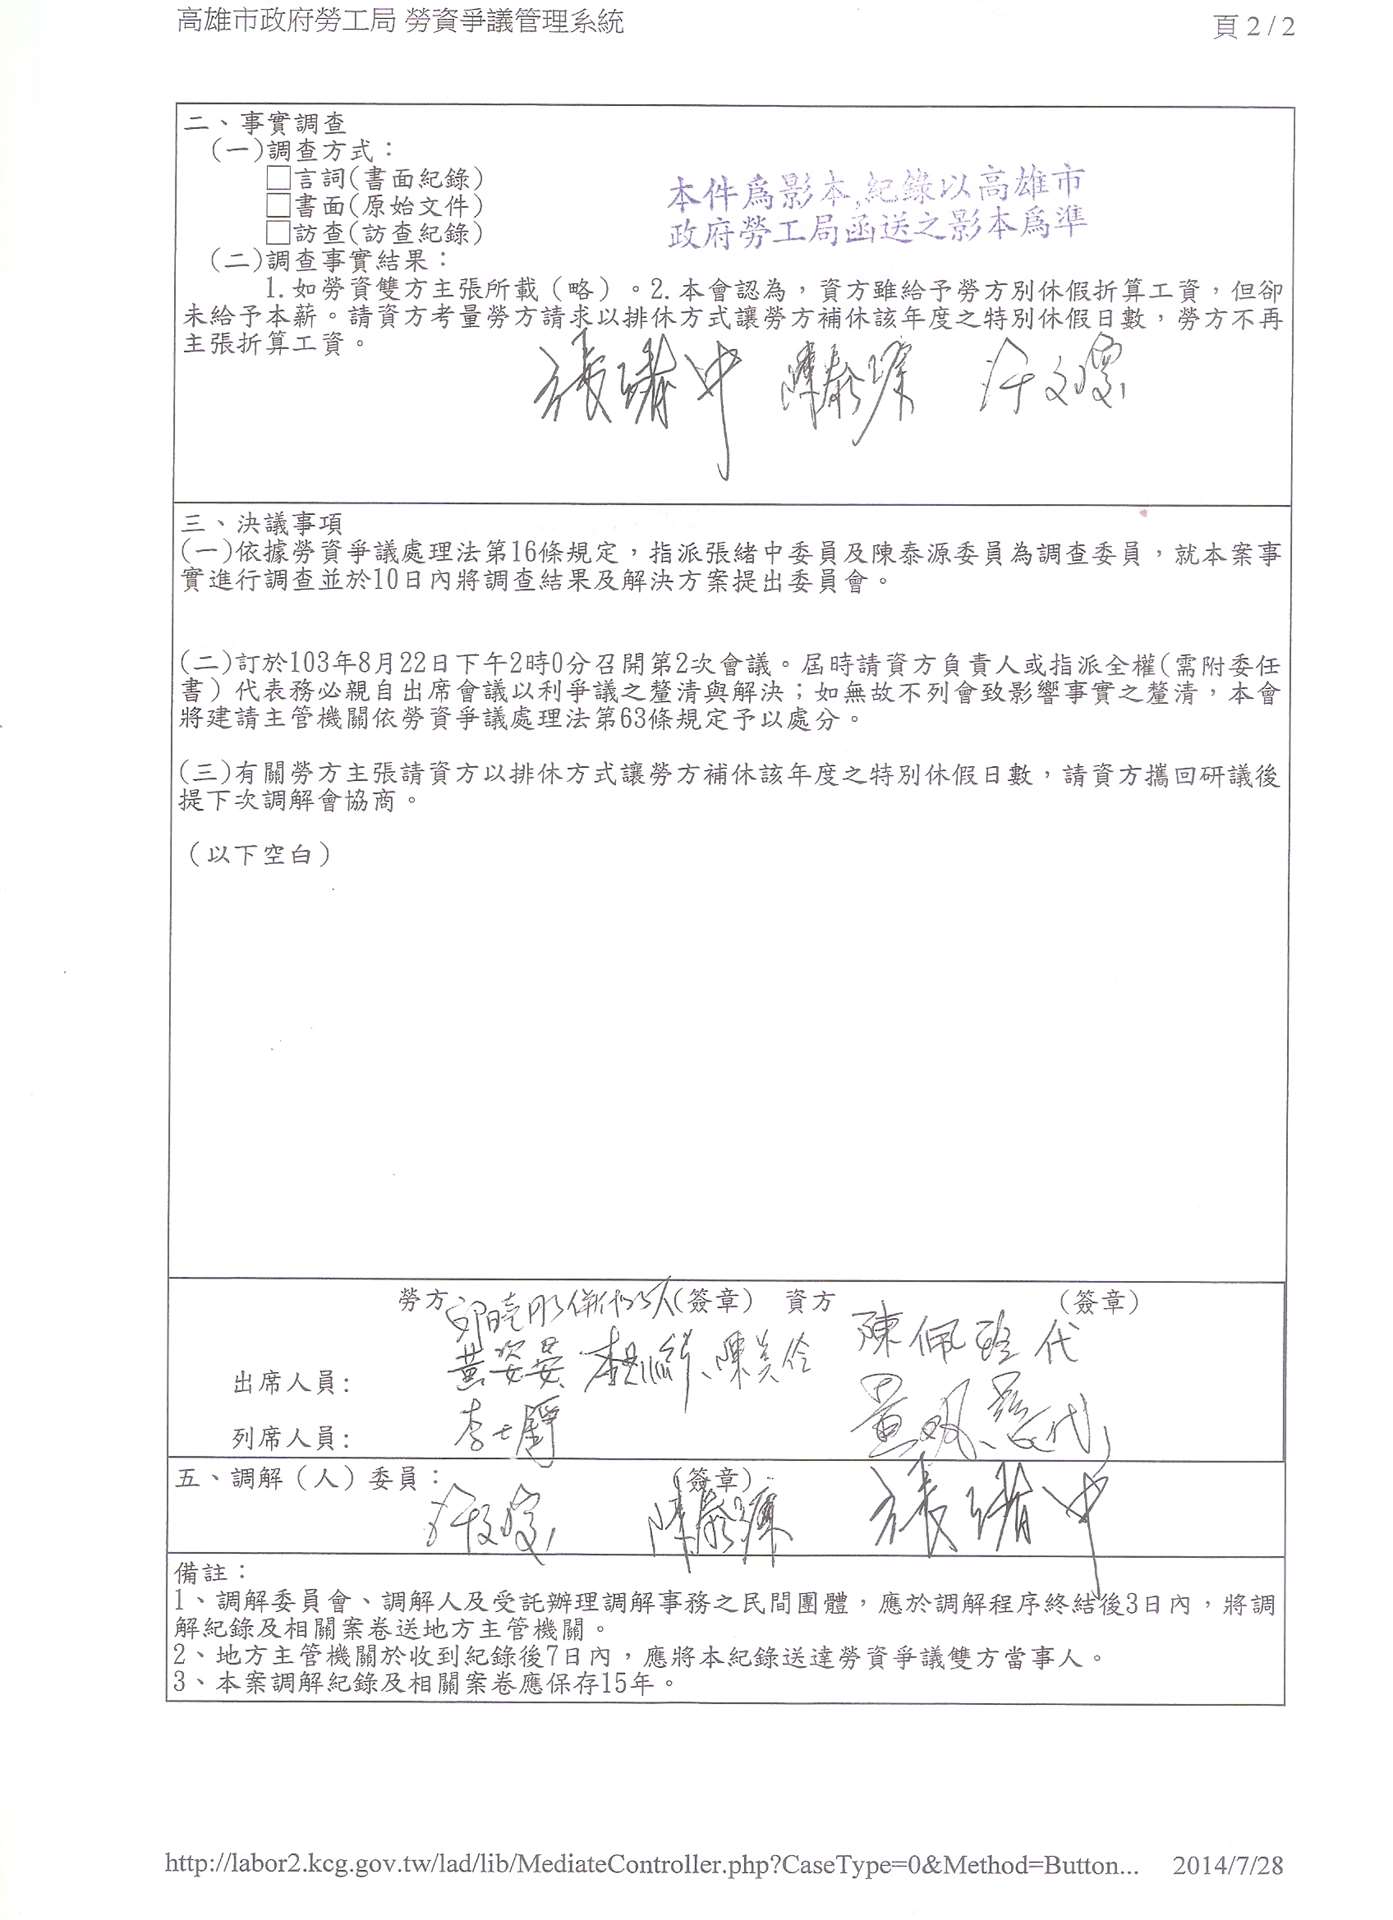 高雄市政府勞工局 勞資爭議管理系統
頁 2 / 2
二、事實調查
(一)調查方式：
□言詞(書面紀錄)
□書面(原始文件)
□訪查(訪查紀錄)
本件為影本,紀錄以高雄市
政府勞工局函送之影本為準
(二)調查事實結果：
1.如勞資雙方主張所載（略）。2.本會認為，資方雖給予勞方別休假折算工資，但卻
未給予本薪。請資方考量勞方請求以排休方式讓勞方補休該年度之特別休假日數，勞方不再
主張折算工資。
三、決議事項
(一)依據勞資爭議處理法第16條規定，指派張緒中委員及陳泰源委員為調查委員，就本案事
實進行調查並於10日內將調查結果及解決方案提出委員會。
(二)訂於103年8月22日下午2時0分召開第2次會議。屆時請資方負責人或指派全權(需附委任
書）代表務必親自出席會議以利爭議之釐清與解決；如無故不列會致影響事實之釐清，本會
將建請主管機關依勞資爭議處理法第63條規定予以處分。
(三)有關勞方主張請資方以排休方式讓勞方補休該年度之特別休假日數，請資方攜回研議後
提下次調解會協商。
（以下空白）
勞方 (簽章) 資方 (簽章)
陳佩 代
黃姿 陳美伶
出席人員:
列席人員:
五、調解（人）委員： (簽章)
備註：
1、調解委員會、調解人及受託辦理調解事務之民間團體，應於調解程序終結後3日內，將調
解紀錄及相關案卷送地方主管機關。
2、地方主管機關於收到紀錄後7日內，應將本紀錄送達勞資爭議雙方當事人。
3、本案調解紀錄及相關案卷應保存15年。
http://labor2.kcg.gov.tw/lad/lib/MediateController.php?CaseType=0&Method=Button... 2014/7/28